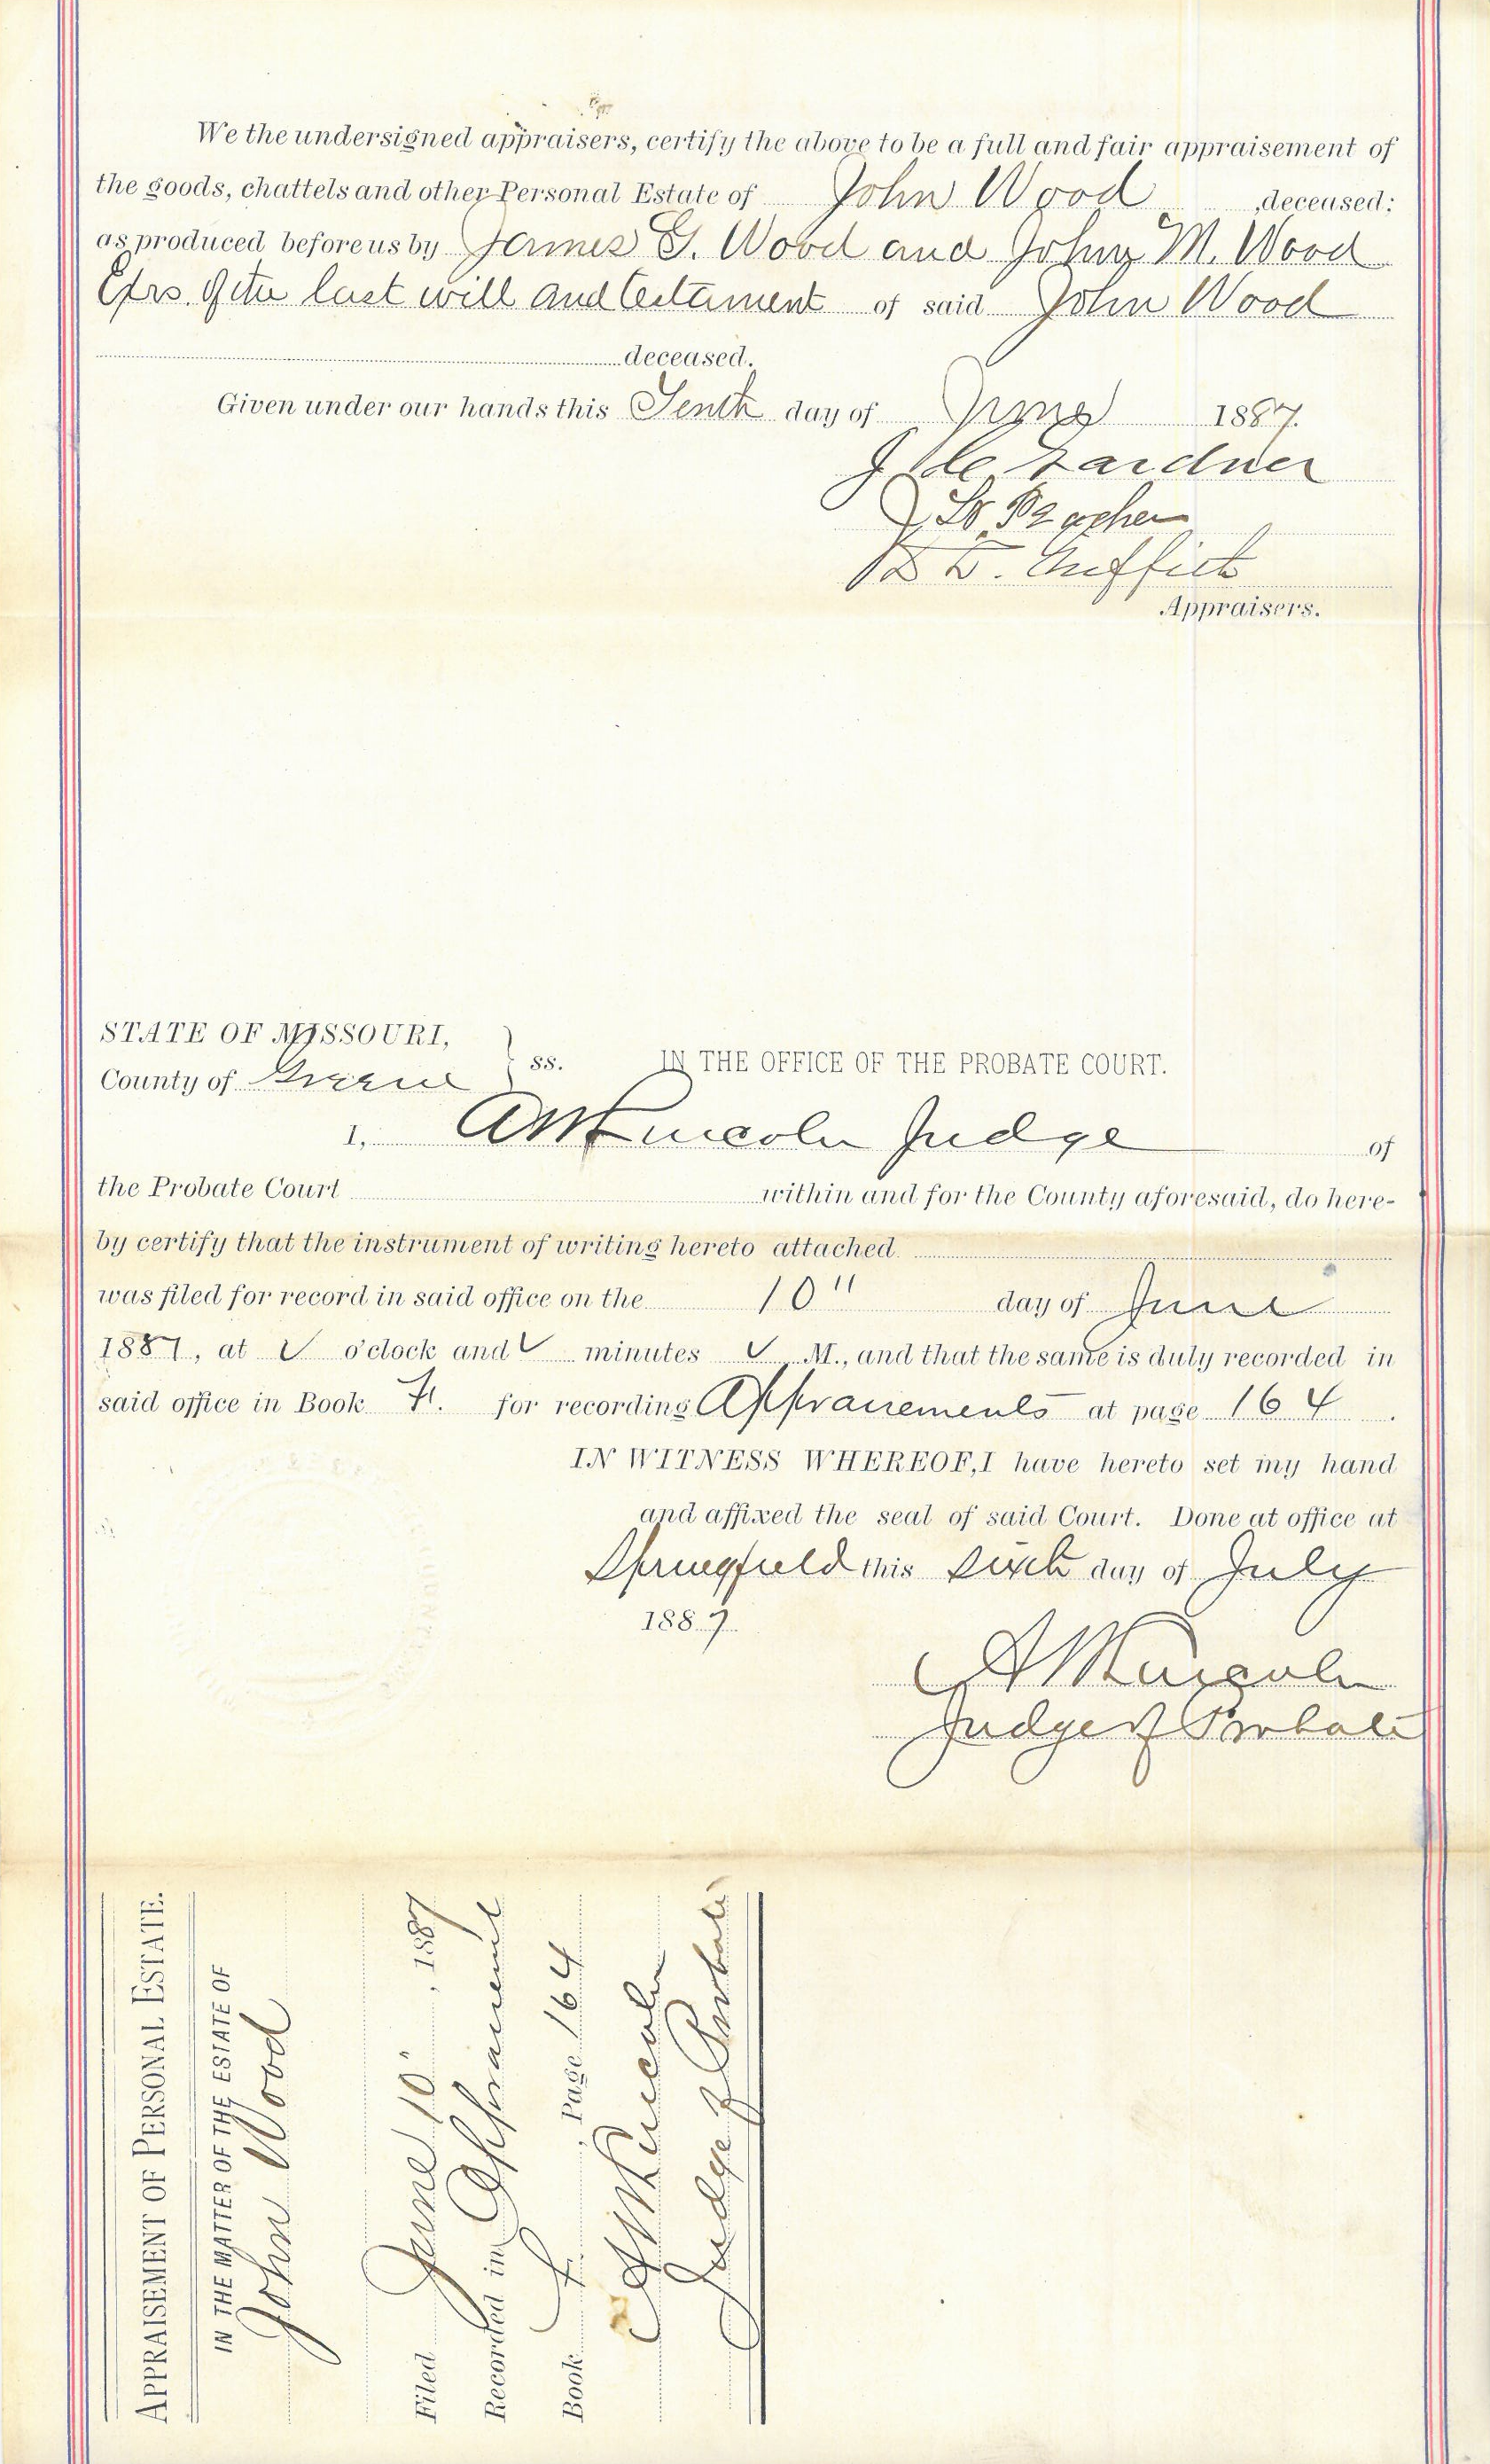 We the undersigned appraisers, certify the above to be a full and fair appraisement of
the goods, chattels and other Personal Estate of John Wood ,deceased:
as produced before us by James G. Wood and John M. Wood
Exrs. of the last will and testament of said John Wood
deceased.
Given under our hands this Tenth day of June 1887.
J Gardner
D D. Griffith
Appraisers.
STATE OF MISSOURI,
County of Greene } ss. IN THE OFFICE OF THE PROBATE COURT.
I, A M Lincoln Judge of
the Probate Court within and for the County aforesaid, do here-
by certify that the instrument of writing hereto attached
was filed for record in said office on the 10" day of June
1887, at o'clock and minutes M., and that the same is duly recorded in
said office in Book F. for recording Appraisements at page 164.
IN WITNESS WHEREOF, I have hereto set my hand
and affixed the seal of said Court. Done at office at
Springfield this sixth day of July
1887
A M Lincoln
Judge of Probate
APPRAISEMENT OF PERSONAL ESTATE.
IN THE MATTER OF THE ESTATE OF
John Wood
Filed June 10", 1887
Recorded in Appraisement
Book F, Page 164
A M Lincoln
Judge of Probate